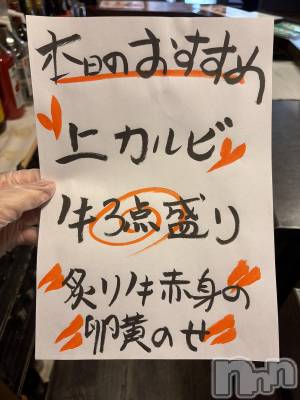 本日のおすすめ
上カルビ
牛3点盛り
炙り牛赤身の
卵黄のせ